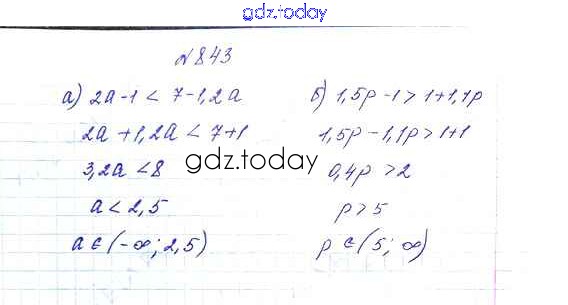 gdz.today
№843
а) 2a-1 < 7-1,2a
2a+1,2a < 7+1
3,2a < 8
a < 2,5
a ∈ (-∞; 2,5)
б) 1,5p-1 > 1+1,1p
1,5p-1,1p > 1+1
0,4p > 2
p > 5
p ∈ (5; ∞)
gdz.today